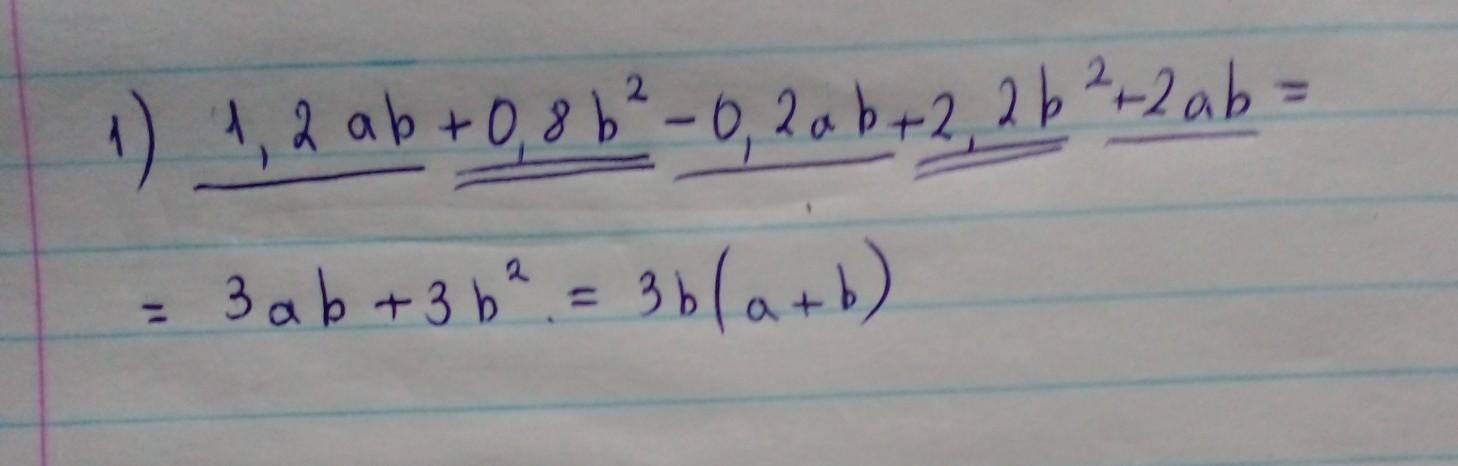 1) 1,2ab+0,8b²-0,2ab+2,2b²+2ab=
= 3ab+3b². = 3b(a+b)